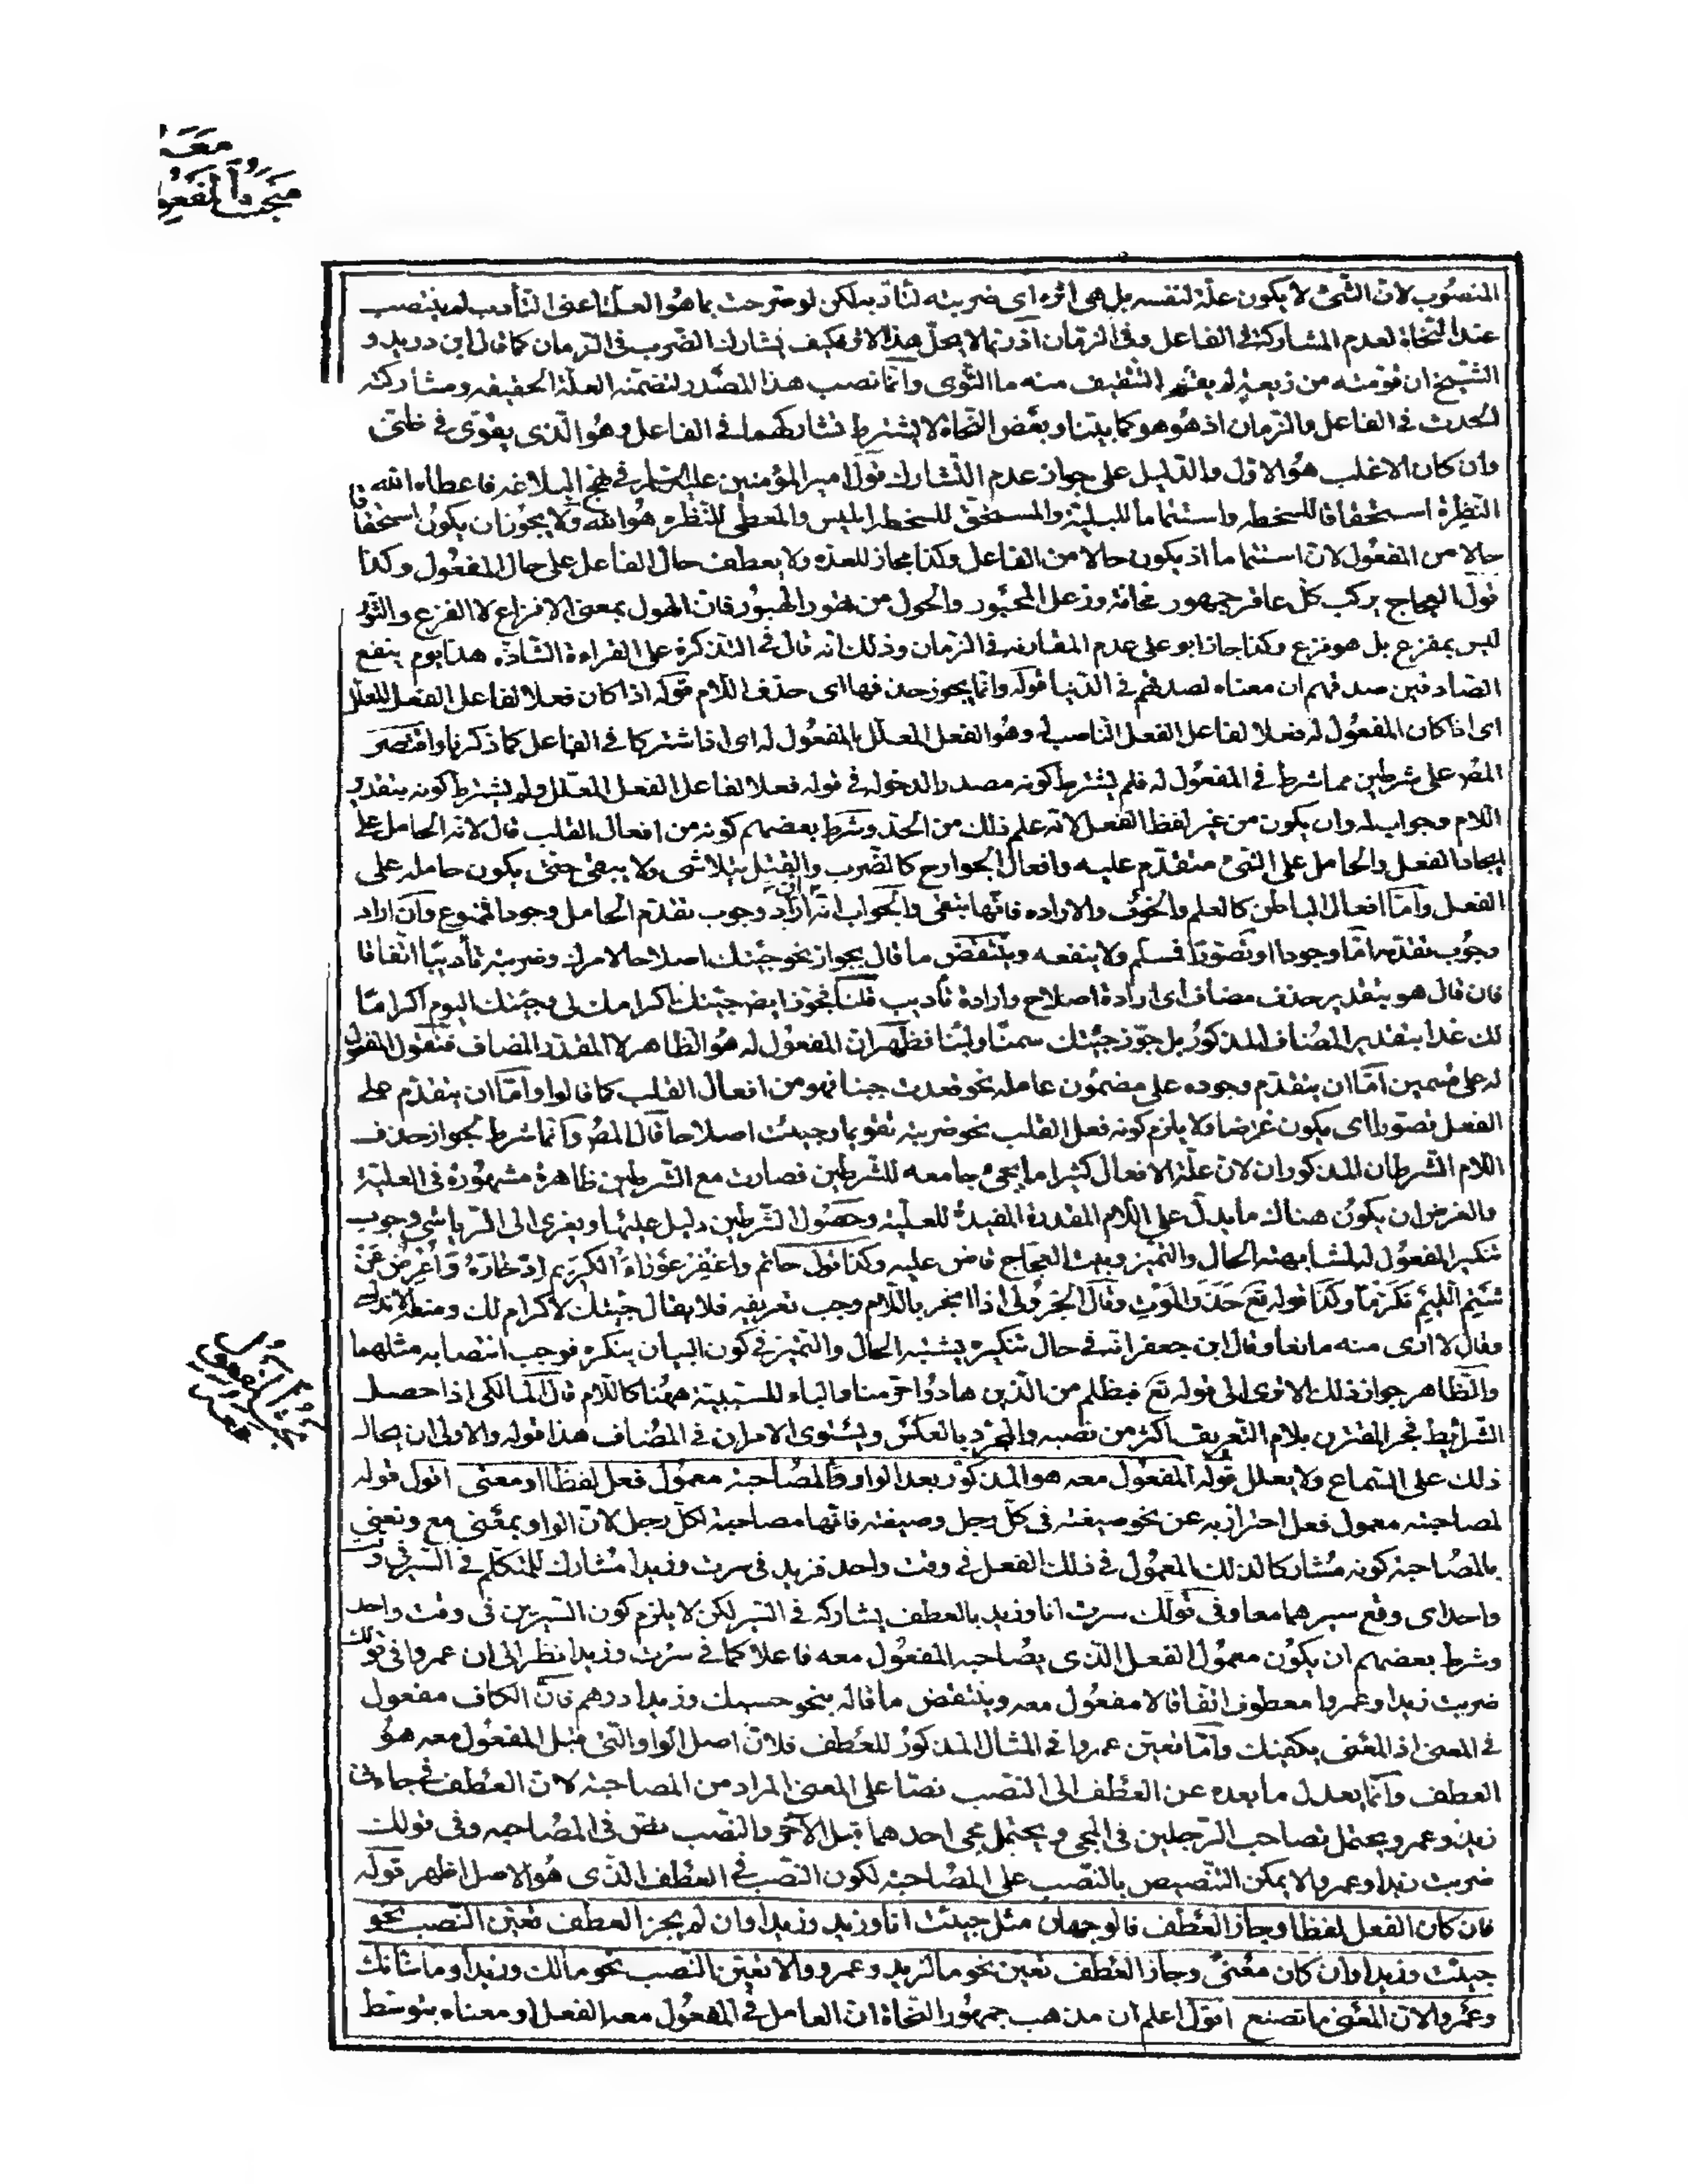 مبحث المفعو
معه
المنصوب لان الشئ لا يكون علة لنفسه بل هى اثره اى ضربته لتأدبه لكن لو صرحت بما هو العلة اعنى التأدب لم ينتصب
عند النحاة لعدم المشاركة فى الفاعل وفى الزمان اذ ربما لا يحل هذا الاثر فكيف يشارك الضرب فى الزمان كما قال ابن دريد و
الشيخ ان قومته من زيغه لم يقم التثقيف منه ما التوى وانما نصب هذا المصدر لتضمنه العلة الحقيقيه ومشاركته
للحدث فى الفاعل والزمان اذ هو هو كما بينا وبعض النحاة لا يشترط تشاركهما فى الفاعل وهو الذى يقوى فى ظنى
وان كان الاغلب هو الاول والدليل على جواز عدم التشارك قول امير المؤمنين عليه السلام فى نهج البلاغه فاعطاه الله
النظرة استحقاقا للسخطه واستتماما للبلية والمستحق للسخطه ابليس والمعطى للنظره هو الله ولا يجوز ان يكون استحقاقا
حالا من المفعول لان استتماما اذ يكون حالا من الفاعل وكذا مجاز للعده ولا يعطف حال الفاعل على حال المفعول وكذا
قول العجاج يركب كل عاقر جمهور مخافة وزعل المحبور والهول من تهور الهبور فان الهول بمعنى الافزاع لا الفزع والثور
ليس بمفزع بل هو فزع وكذا جاز ابو على عدم المقارنه فى الزمان وذلك انه قال فى التذكرة على القراءة الشاذه هذا يوم ينفع
الصادقين صدقهم ان معناه لصدقهم فى الدنيا قوله وانما يجوز حذفها اى حذف اللام قوله اذا كان فعلا لفاعل الفعل المعلل
اى اذا كان المفعول له فعلا لفاعل الفعل الناصب له وهو الفعل المعلل بالمفعول له اى اذا اشتركا فى الفاعل كما ذكرنا واقتصر
المص على شرطين مما شرط فى المفعول له فلم يشترط كونه مصدرا لدخوله فى قوله فعلا لفاعل الفعل المعلل ولم يشترط كونه بتقدير
اللام وجواب لمه وان يكون من غير لفظ الفعل لانه علم ذلك من الحد وشرط بعضهم كونه من افعال القلب قال لانه الحامل على
ايجاد الفعل والحامل على الشئ متقدم عليه وافعال الجوارح كالضرب والقتل يتلاشى ولا يبقى حتى يكون حاملا على
الفعل واما افعال الباطن كالعلم والخوف والاراده فانها تبقى والجواب انه ان اراد وجوب تقدم الحامل وجودا فممنوع وان اراد
وجوب تقدمه اما وجودا او تصورا فمسلم ولا ينفعه وينتقض ما قال بجواز نحو جئتك اصلاحا لامرك وضربته تأديبا اتفاقا
فان قال هو بتقدير حذف مضاف اى ارادة اصلاح وارادة تأديب قلنا فجوز ايض جئتك اكرامك لى وجئتك اليوم اكراما
لك غدا بتقدير المضاف المذكور بل جوز جئتك سمنا ولبنا فظهر ان المفعول له هو الظاهر لا المقدر المضاف فنقول المفعول
له على قسمين اما ان يتقدم وجوده على مضمون عامله نحو قعدت جبنا فهو من افعال القلب كما قالوا واما ان يتقدم على
الفعل تصورا اى يكون غرضا ولا يلزم كونه فعل القلب نحو ضربته تقويما وجئت اصلاحا قال المص وانما شرط لجواز حذف
اللام الشرطان المذكوران لان علة الافعال كثيرا ما يجئ جامعه للشرطين فصارت مع الشرطين ظاهرة مشهورة فى العلية
والغرض ان يكون هناك ما يدل على اللام المقدرة المفيدة للعلية وحصول الشرطين دليل عليها ويعزى الى الرياشى وجوب
تنكير المفعول له لمشابهته الحال والتميز وبيت العجاج قاض عليه وكذا قول حاتم واغفر عوراء الكريم ادخاره واعرض عن
شتم اللئيم تكرما وكذا قوله تع حذر الموت وقال الجزولى اذا انجر باللام وجب تعريفه فلا يقال جئتك لاكرام لك ومنعه الاندلسى
وقال لا ارى منه مانعا وقال ابن جعفر انه فى حال تنكيره يشبه الحال والتميز فى كون البيان بنكره فوجب انتصابه مثلهما
والظاهر جواز ذلك الا ترى الى قوله تع فبظلم من الذين هادوا حرمنا والباء للسببية ههنا كاللام قال المالكى اذا حصل
الشرائط فجر المقترن بلام التعريف اكثر من نصبه والمجرد بالعكس ويستوى الامران فى المضاف هذا قوله والاولى ان يحال
ذلك على السماع ولا يعلل قوله المفعول معه هو المذكور بعد الواو لمصاحبة معمول فعل لفظا او معنى اقول قوله
لمصاحبته معمول فعل احتراز به عن نحو ضيعته فى كل رجل وضيعته فانها مصاحبة لكل رجل لان الواو بمعنى مع ونعنى
بالمصاحبة كونه مشاركا لذلك المعمول فى ذلك الفعل فى وقت واحد فزيد فى سرت وزيدا مشارك للمتكلم فى السير فى وقت
واحد اى وقع سيرهما معا وفى قولك سرت انا وزيد بالعطف يشاركه فى السير لكن لا يلزم كون السيرين فى وقت واحد
وشرط بعضهم ان يكون معمول الفعل الذى يصاحبه المفعول معه فاعلا كما فى سرت وزيدا نظرا الى ان عمروا فى قولك
ضربت زيدا وعمروا معطوف اتفاقا لا مفعول معه وينتقض ما قاله بنحو حسبك وزيدا درهم فان الكاف مفعول
فى المعنى اذ المعنى يكفيك واما تعين عمروا فى المثال المذكور للعطف فلان اصل الواو التى قبل المفعول معه هو
العطف وانما يعدل ما بعده عن العطف الى النصب نصا على المعنى المراد من المصاحبة لان العطف فى جاءنى
زيد وعمرو يحتمل تصاحب الرجلين فى المجئ ويحتمل مجئ احدهما قبل الآخر والنصب نص فى المصاحبه وفى قولك
ضربت زيدا وعمروا لا يمكن التنصيص بالنصب على المصاحبة لكون النصب فى العطف الذى هو الاصل اظهر قوله
فان كان الفعل لفظا وجاز العطف فالوجهان مثل جئت انا وزيد وزيدا وان لم يجز العطف تعين النصب نحو
جئت وزيدا وان كان معنى وجاز العطف تعين نحو ما لزيد وعمرو والا تعين النصب نحو مالك وزيدا وما شانك
وعمروا لان المعنى ما تصنع اقول اعلم ان مذهب جمهور النحاة ان العامل فى المفعول معه الفعل او معناه بتوسط
مبحث المفعول
معه